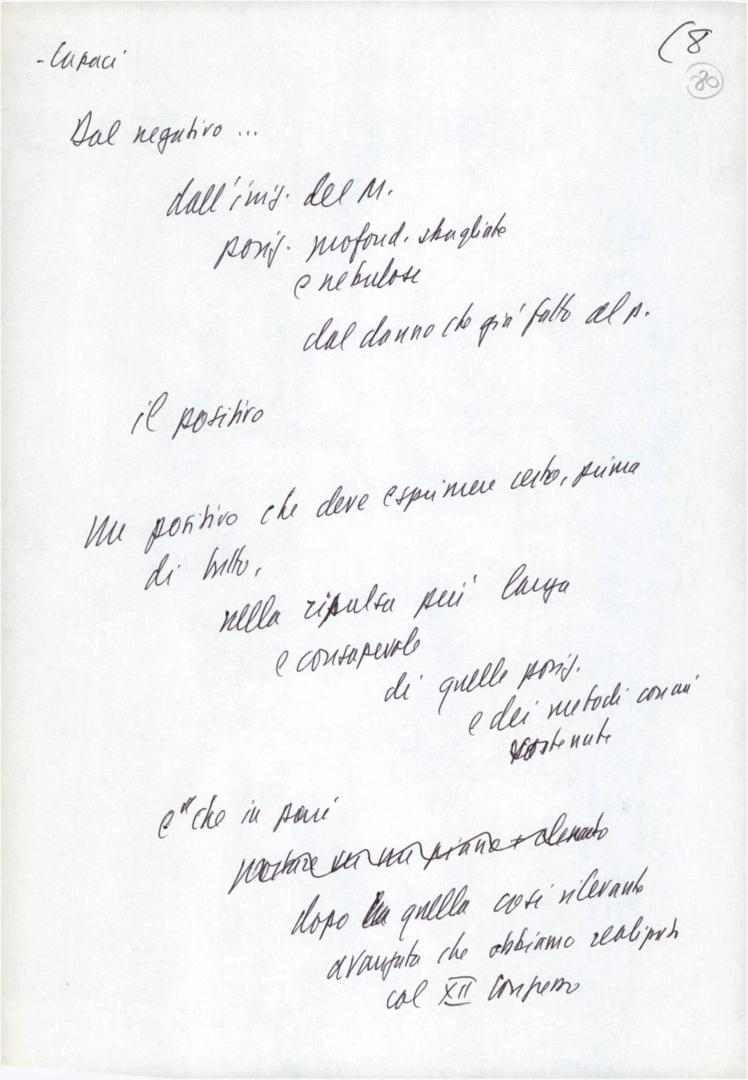 - Capaci
(8
20
Dal negativo ...
dall'iniz. del M.
posiz. profond. sbagliate
e nebulose
dal danno che già fatto al p.
il positivo
Un positivo che deve esprimere certo, prima
di tutto,
nella ripulsa più larga
e consapevole
di quelle posiz.
e dei metodi con cui
sostenute
e" che in
portare su un piano + elevato
dopo quella così rilevante
avanzata che abbiamo realizzato
col XII Congresso